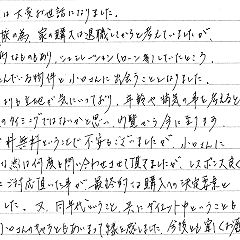 は大変お世話になりました。
族の為、家の購入は退職してからと考えていましたが、
的なものもあり、シュミレーション(ローン等)していたところ、
んでいた物件と小口さんに出会うこととなりました。
よりも立地が気にいっており、年齢や病気の事を考えると
のタイミングではないかと思い、内覧から今に至ります
料無料ということで不安もございましたが、小口さんに
な点は何度も問い合わせさせて頂きましたが、レスポンス良く
にご対応頂いた事が、最終的なる購入への決定要素と
した。又、同年代ということ、共にダイエット中ということも
小口さんのちょうどもあいまって縁と感じました。今後とも宜しくお願